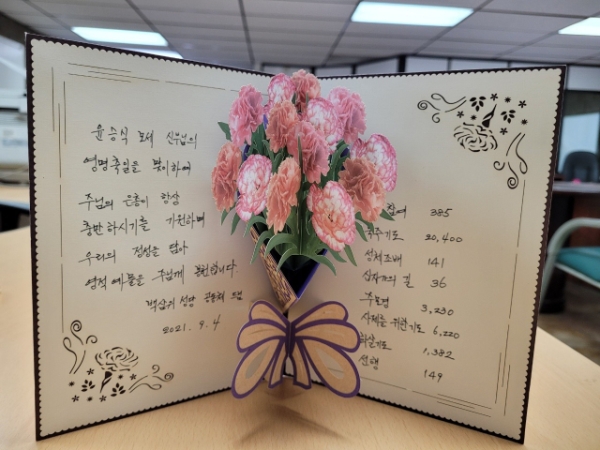 윤승식 모세 신부님의
영명축일을 맞이하여
주님의 은총이 항상
충만하시기를 기원하며
우리의 정성을 담아
영적 예물을 주님께 봉헌합니다
백삼위 성당 공동체 드림
2021. 9. 4
참여 385
묵주기도 20,400
성체조배 141
십자가의 길 36
주모경 3,230
사제를 위한 기도 6,220
화살기도 1,382
선행 149